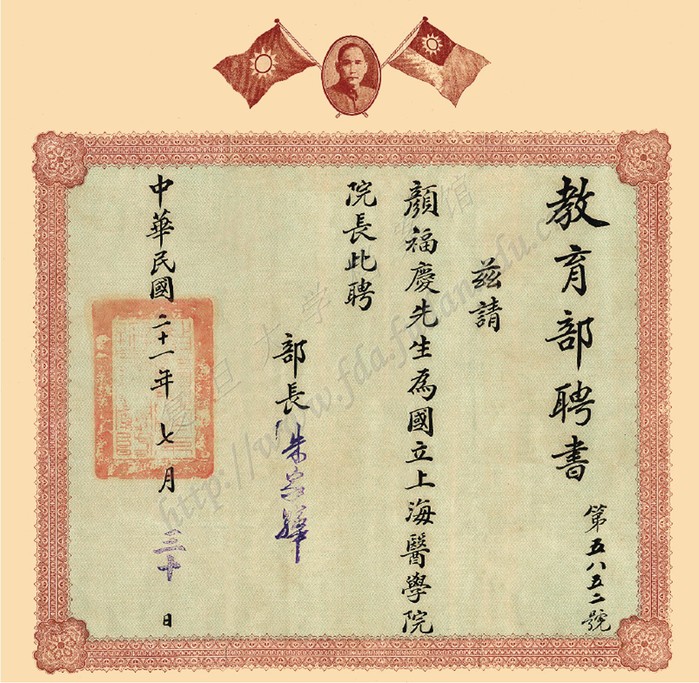 教育部聘書
第五八五二號
茲請
顏福慶先生為國立上海醫學院
院長此聘
部長朱家驊
中華民國二十一年七月三十日
復旦大學
http://www.fda.fudan.edu.c